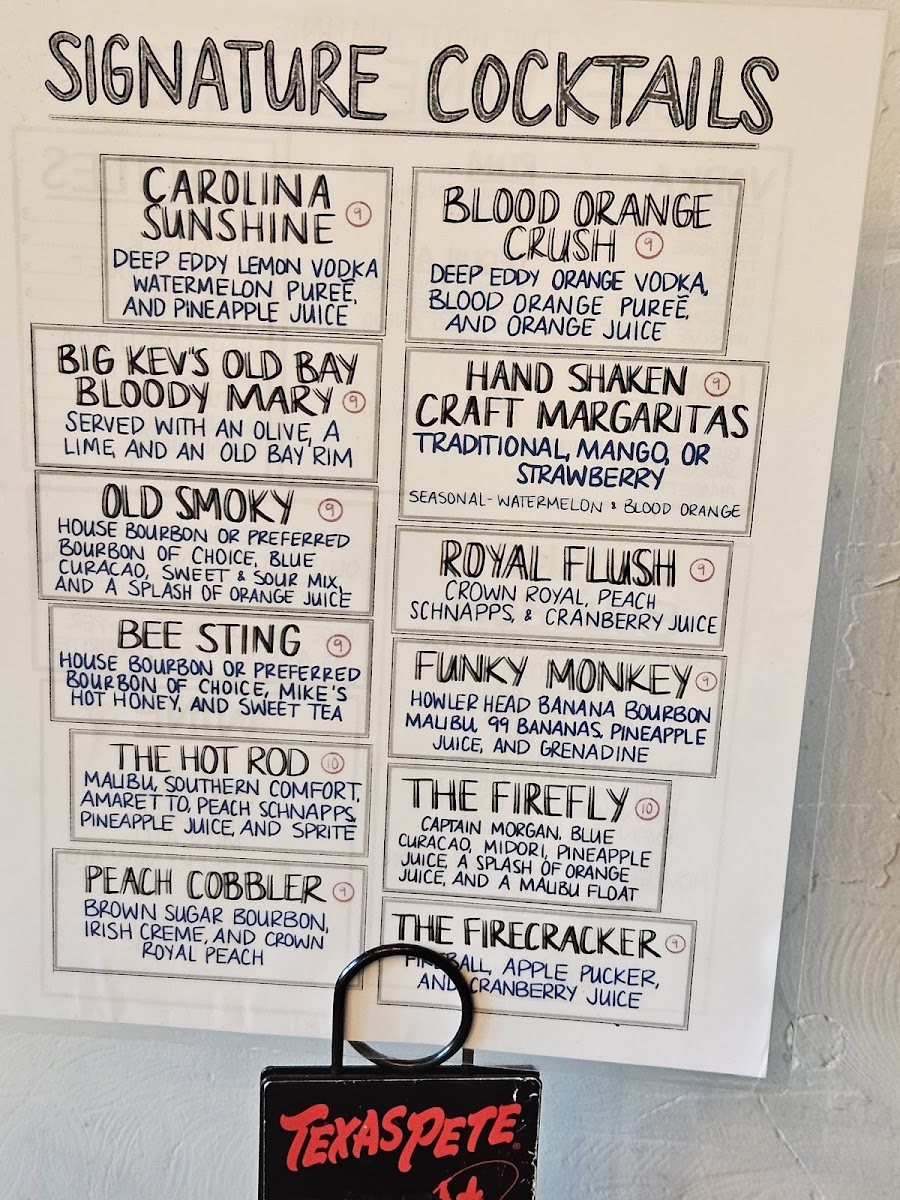 SIGNATURE COCKTAILS
CAROLINA
SUNSHINE 9
DEEP EDDY LEMON VODKA
WATERMELON PUREÉ,
AND PINEAPPLE JUICE
BIG KEV'S OLD BAY
BLOODY MARY 9
SERVED WITH AN OLIVE, A
LIME, AND AN OLD BAY RIM
OLD SMOKY 9
HOUSE BOURBON OR PREFERRED
BOURBON OF CHOICE, BLUE
CURACAO, SWEET & SOUR MIX,
AND A SPLASH OF ORANGE JUICE
BEE STING 9
HOUSE BOURBON OR PREFERRED
BOURBON OF CHOICE, MIKE'S
HOT HONEY, AND SWEET TEA
THE HOT ROD 10
MALIBU, SOUTHERN COMFORT,
AMARETTO, PEACH SCHNAPPS,
PINEAPPLE JUICE, AND SPRITE
PEACH COBBLER 9
BROWN SUGAR BOURBON,
IRISH CREME, AND CROWN
ROYAL PEACH
BLOOD ORANGE
CRUSH 9
DEEP EDDY ORANGE VODKA,
BLOOD ORANGE PUREÉ,
AND ORANGE JUICE
HAND SHAKEN 9
CRAFT MARGARITAS
TRADITIONAL, MANGO, OR
STRAWBERRY
SEASONAL- WATERMELON & BLOOD ORANGE
ROYAL FLUSH 9
CROWN ROYAL, PEACH
SCHNAPPS, & CRANBERRY JUICE
FUNKY MONKEY 9
HOWLER HEAD BANANA BOURBON
MALIBU, 99 BANANAS, PINEAPPLE
JUICE, AND GRENADINE
THE FIREFLY 10
CAPTAIN MORGAN, BLUE
CURACAO, MIDORI, PINEAPPLE
JUICE, A SPLASH OF ORANGE
JUICE, AND A MALIBU FLOAT
THE FIRECRACKER 9
FIREBALL, APPLE PUCKER,
AND CRANBERRY JUICE
TEXAS PETE